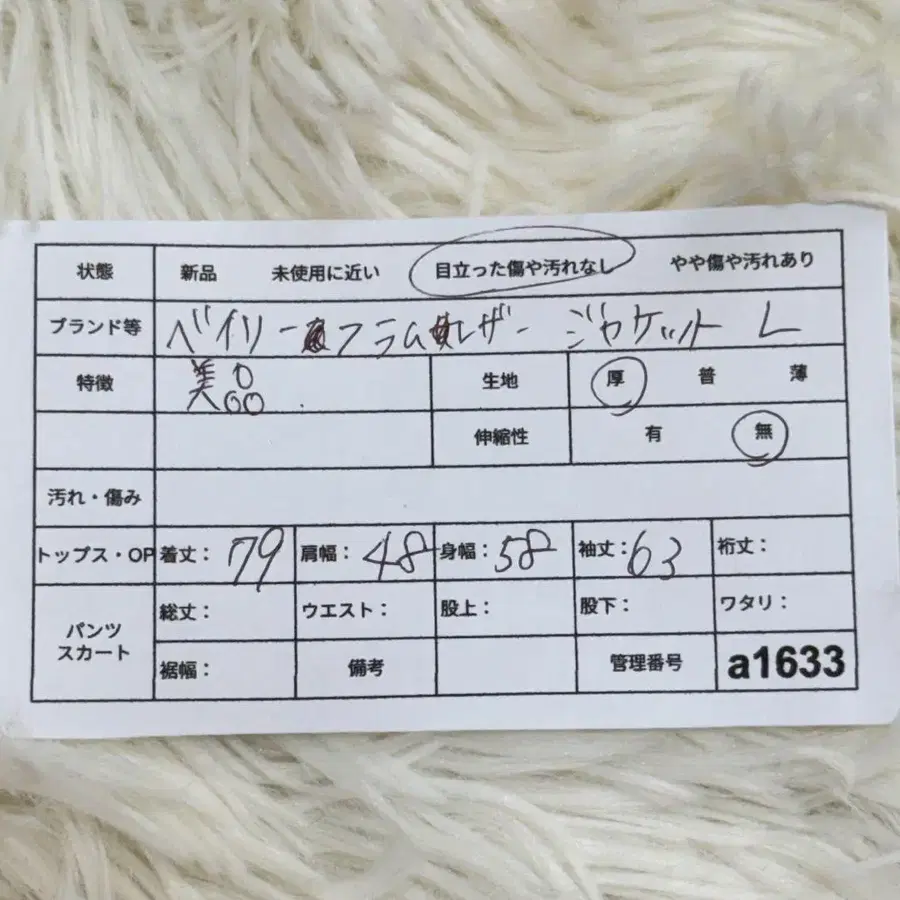 状態 新品 未使用に近い 目立った傷や汚れなし やや傷や汚れあり
ブランド等 ベイリーフラムレザー ジャケット L
特徴 美品 生地 厚 普 薄
伸縮性 有 無
汚れ・傷み
トップス・OP 着丈: 79 肩幅: 48 身幅: 58 袖丈: 63 裄丈:
パンツ スカート 総丈: ウエスト: 股上: 股下: ワタリ:
裾幅: 備考 管理番号 a1633